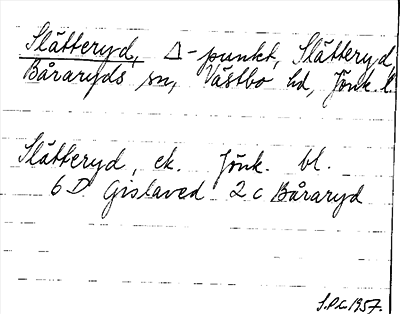 Slätteryd, Δ-punkt, Slätteryd,
Båraryds sn, Västbo hd, Jönk. l.
Slätteryd, ek. Jönk. bl.
6 D Gislaved 2 c Båraryd
S.P.L. 1957.